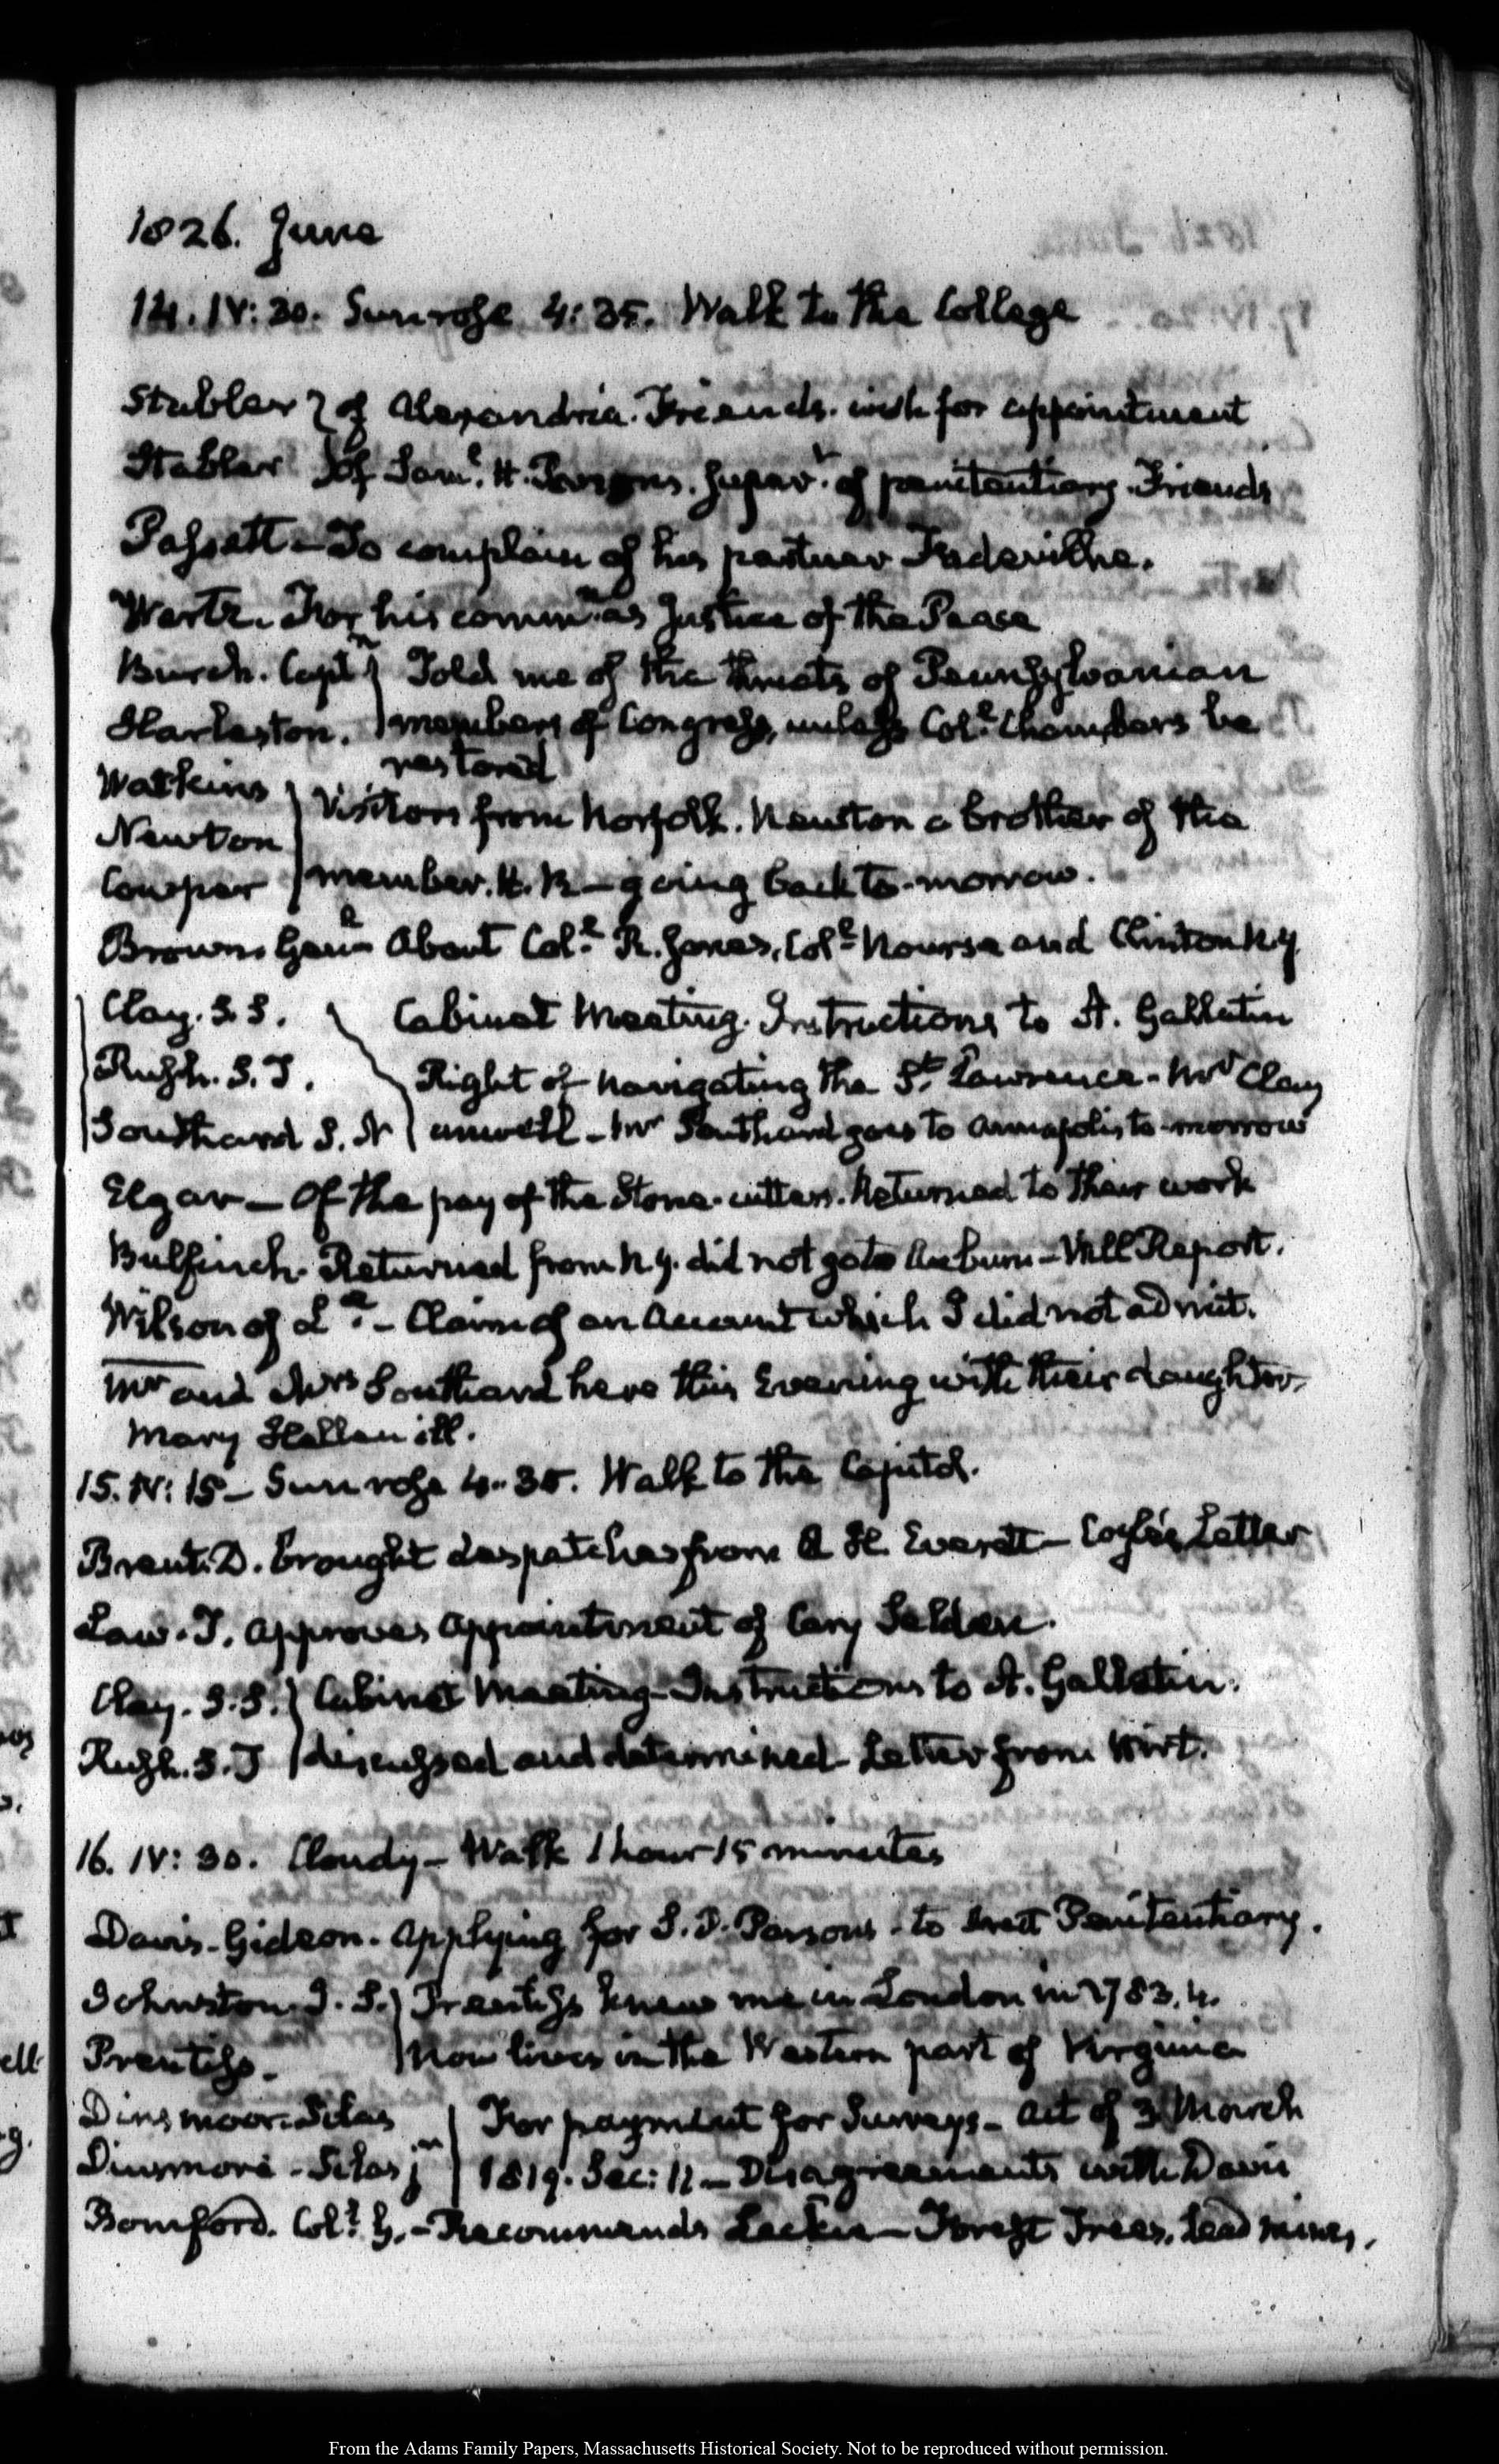 1826. June
14. IV: 30. Sun rose 4: 35. Walk to the College
Stabler } of Alexandria. Friends. wish for appointment
Stabler } of Saml. H. Parsons. Superr. of penitentiary. Friends
Passett - To complain of his partner
Wertz. For his commn. as Justice of the Peace
Burch. Captn } Told me of the threats of Pennsylvanian
Harleston. } members of Congress, unless Coll. Chambers be
restored
Watkins } Visitors from Norfolk. Newton a brother of the
Newton
Cowper } member. H. R - going back to-morrow.
Brown Genl. About Coll. R. Jones, Coll. Nourse and Clinton N.Y.
Clay. S. S. } Cabinet Meeting. Instructions to A. Gallatin
Rush. S. T. } Right of navigating the St. Lawrence - Mr Clay
Southard S. N } unwell - Mr Southard goes to Annapolis to-morrow
Elgar - Of the pay of the Stone-cutters. Returned to their work
Bulfinch. Returned from N.Y. did not go to Auburn - Will Report.
Wilson of La. - Claim of an Account which I did not admit.
Mr and Mrs Southard here this Evening with their daughter.
Mary Hellen ill.
15. IV: 15 - Sun rose 4-35. Walk to the Capitol.
Brent. D. brought despatches from A. H. Everett - Letter
Law. T. approves appointment of Cary Selden.
Clay. S. S. } Cabinet Meeting - Instructions to A. Gallatin.
Rush. S. T } discussed and determined - Letter from Wirt.
16. IV: 30. Cloudy - Walk 1 hour 15 minutes
Davis - Gideon. Applying for S. D. Parsons - to Penitentiary.
Johnston. J. S. } Prentiss knew me in London in 1783. 4.
Prentiss. } Now lives in the Western part of Virginia
Dinsmoor. Silas } For payment for Surveys - Act of 3 March
Dinsmore - Silas jun } 1819. Sec: 11 - Disagreements with Davis
Bomford. Coll. G. - Recommends Leckie - Forest Trees. Lead mines.
From the Adams Family Papers, Massachusetts Historical Society. Not to be reproduced without permission.